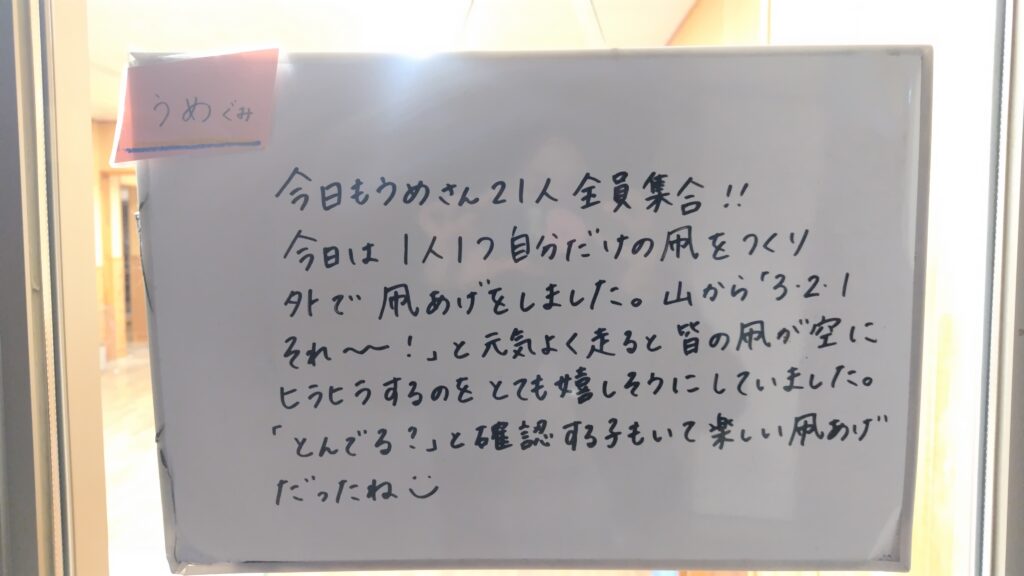 うめぐみ
今日もうめさん21人全員集合!!
今日は1人1つ自分だけの凧をつくり
外で凧あげをしました。山から「3・2・1
それ〜〜!」と元気よく走ると皆の凧が空に
ヒラヒラするのをとても嬉しそうにしていました。
「とんでる?」と確認する子もいて楽しい凧あげ
だったね